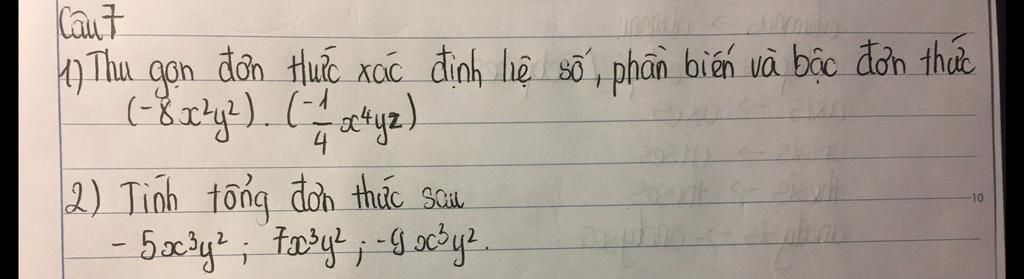 Câu 7
1) Thu gọn đơn thức xác định hệ số, phần biến và bậc đơn thức
(-8x²y²) . (-1/4 x⁴yz)
2) Tính tổng đơn thức sau
- 5x³y² ; 7x³y² ; -9x³y².
10